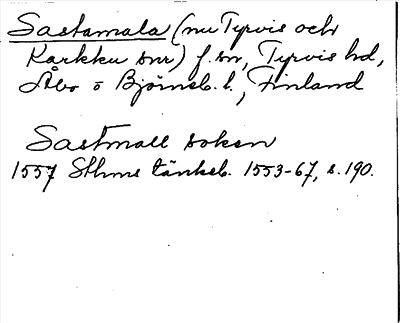 Sastamala (nu Tyrvis och
Karkku snr) f. sn, Tyrvis hd,
Åbo o Björneb. l., Finland
Sastmall soken
1557 Sthms tänkeb. 1553-67, s. 190.